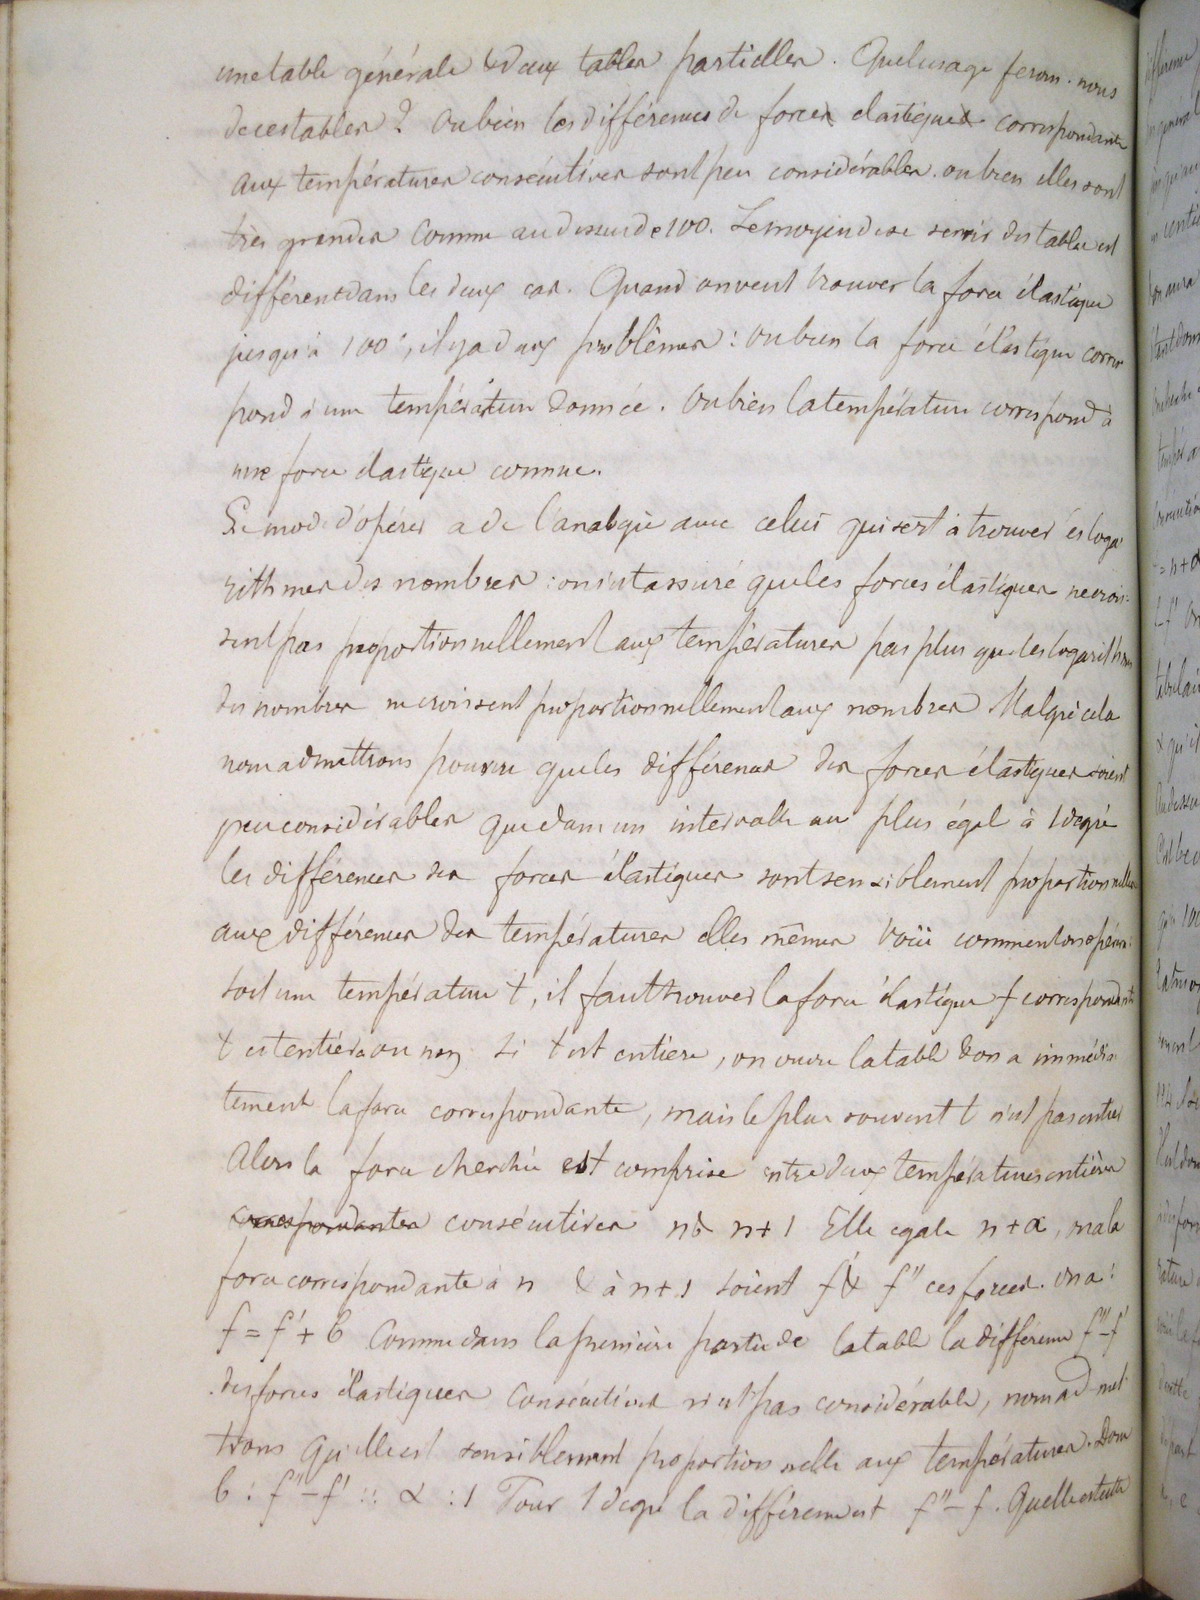 une table générale & deux tables partielles. Quel usage ferons-nous
de ces tables? Ou bien les différences de forces élastiques correspondantes
aux températures consécutives sont peu considérables. ou bien elles sont
très grandes comme au dessus de 100. Le moyen de se servir des tables est
différent dans les deux cas. Quand on veut trouver la force élastique
jusqu'à 100°, il y a deux problèmes: ou bien la force élastique corres
pond à une température donnée. Ou bien la température correspond à
une force élastique connue.
Le mode d'opérer a de l'analogie avec celui qui sert à trouver les loga
rithmes des nombres: on s'est assuré que les forces élastiques ne crois-
sent pas proportionnellement aux températures pas plus que les logarithmes
des nombres ne croissent proportionnellement aux nombres Malgré cela
nous admettrons pourvu que les différences des forces élastiques soient
peu considérables que dans un intervalle au plus égal à 1 degré
les différences des forces élastiques sont sensiblement proportionnelles
aux différences des températures elles mêmes Voici comment on opère:
soit une température t, il faut trouver la force élastique f correspondante
t est entière ou non Si t est entière, on ouvre la table & on a immédia
tement la force correspondante, mais le plus souvent t n'est pas entier
Alors la force cherchée est comprise entre deux températures entières
correspondantes consécutives n & n+1 Elle egale n+α, mais la
force correspondante à n & à n+1 soient f' & f'' ces forces. On a:
f = f' + b Comme dans la première partie de la table la différence f''-f'
des forces élastiques consécutives n'est pas considérable, nous admet
trons qu'elle est sensiblement proportionnelle aux températures. Donc
b : f''-f' :: α : 1 Pour 1 degré la différence est f''-f. Quelle est cette